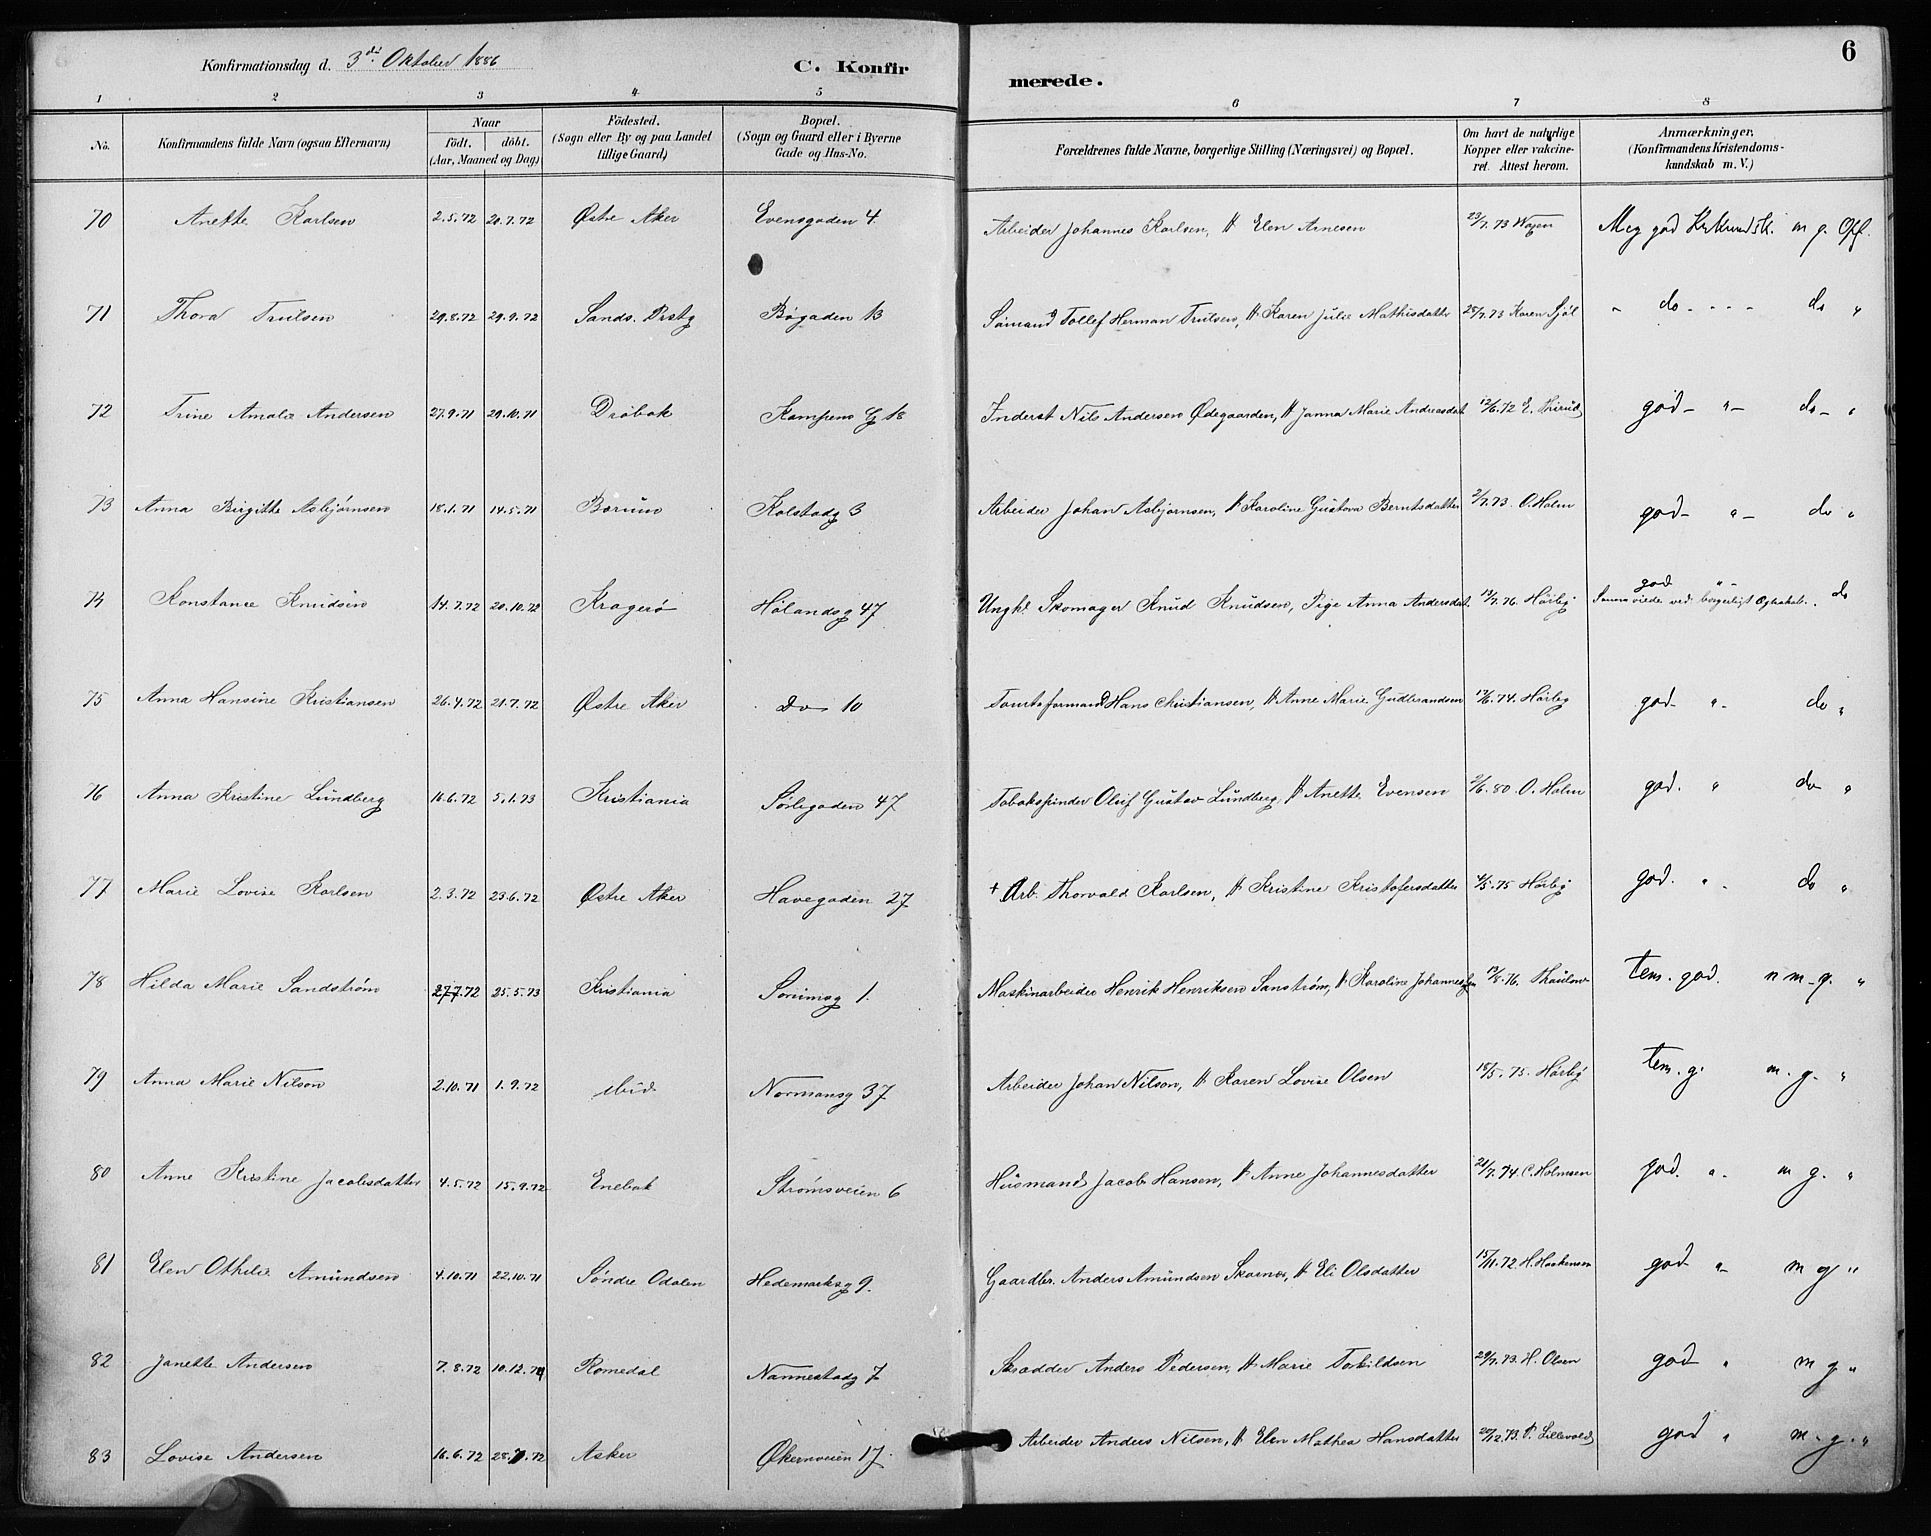 Konfirmationsdag d. 3die Oktober 1886 C. Konfirmerede. 6
1 2 3 4 5 6 7 8
No. Konfirmandens fulde Navn (ogsaa Efternavn) Naar födt. döbt. (Aar, Maaned og Dag) Födested. (Sogn eller By og paa Landet tillige Gaard) Bopæl. (Sogn og Gaard eller i Byerne Gade og Hus-No. Forældrenes fulde Navne, borgerlige Stilling (Næringsvei) og Bopæl. Om havt de naturlige Kopper eller vakcineret. Attest herom. Anmærkninger. (Konfirmandens Kristendomskundskab m. V.)
70 Anette Karlsen 2.5.72 20.7.72 Østre Aker Evensgaden 4 Arbeider Johannes Karlsen, H Elen Arnesen 23/7.73 Meg god Kr. Kundsk. m g. Opf.
71 Thora Trulsen 29.8.72 29.9.72 Sands. Prstg Bøgaden 13 Sømand Tollef Herman Trulsen, H Karen Julie Mathisdatter 28/7.73 Karen " do - - - do "
72 Trine Amalie Andersen 27.9.71 29.10.71 Drøbak Kampens G 18 Inderst Nils Andersen Ødegaarden, H Janna Marie Andreasdat 12/6.72 E. god - " - do - "
73 Anna Birgitte Asbjørnsen 18.1.71 14.5.71 Bærum Kolstadg 3 Arbeider Johan Asbjørnsen, H Karoline Gustava Berntsdatter 2/7.73. O. Holm god - " - do "
74 Konstance Knudsen 14.7.72 20.10.72 Kragerø Hølandsg 47 Ungk. Skomager Knud Knudsen, Pige Anna Andersdat. 13/7.76. Hørbg god " Samvviede ved borgerligt Ægteskab. do
75 Anna Hansine Kristiansen 26.4.72 21.7.72 Østre Aker Do 10 Tomteformand Hans Christiansen, H Anne Marie Gudbrandsen 17/6.74. Hørbg god " - do "
76 Anna Kristine Lundberg 16.6.72 5.1.73 Kristiania Sørligaden 47 Tobakspinder Oluf Gustav Lundberg, H Anette Evensen 2/6.80. O. Holm god. " do "
77 Marie Lovise Karlsen 2.3.72 23.6.72 Østre Aker Havegaden 27 + Arb. Thorvald Karlsen, H Kristine Kristofersdatter 4/5.75 Hørbg god. " - do "
78 Hilda Marie Sandstrøm 27.7.72 25.5.73 Kristiania Sørumsg 1. Maskinarbeider Henrik Henriksen Sanstrøm, H Karoline Johannesen 13/8.76. Thaulow tem. god. n m - g. "
79 Anna Marie Nilsen 2.10.71 1.9.72 ibid. Normansg 37 Arbeider Johan Nilsen, H Karen Lovise Olsen 18/5.75. Hørbg tem. g. m. g. "
80 Anne Kristine Jacobsdatter 4.5.72 15.9.72 Enebak Strømsveien 6 Husmand Jacob Hansen, H Anne Johannesdatter 21/7.74 C. Holmsen god. " m g. "
81 Elen Othilie Amundsen 4.10.71 22.10.71 Søndre Odalen Hedemarksg 9. Gaardbr. Anders Amundsen Skarnes, H Eli Olsdatter 15/11.72. H. god " - m g "
82 Janette Andersen 7.8.72 10.12.74 Romedal Nannestadg 7 Skrædder Anders Pedersen, H Marie Torkildsen 29/7.73. H. Olsen god " m g "
83 Lovise Andersen 16.6.72 28.7.72 Asker Økernveien 17. Arbeider Anders Nilsen, H Elen Mathea Hansdatter 20/12.73. P. Lillevold god " m. g. "